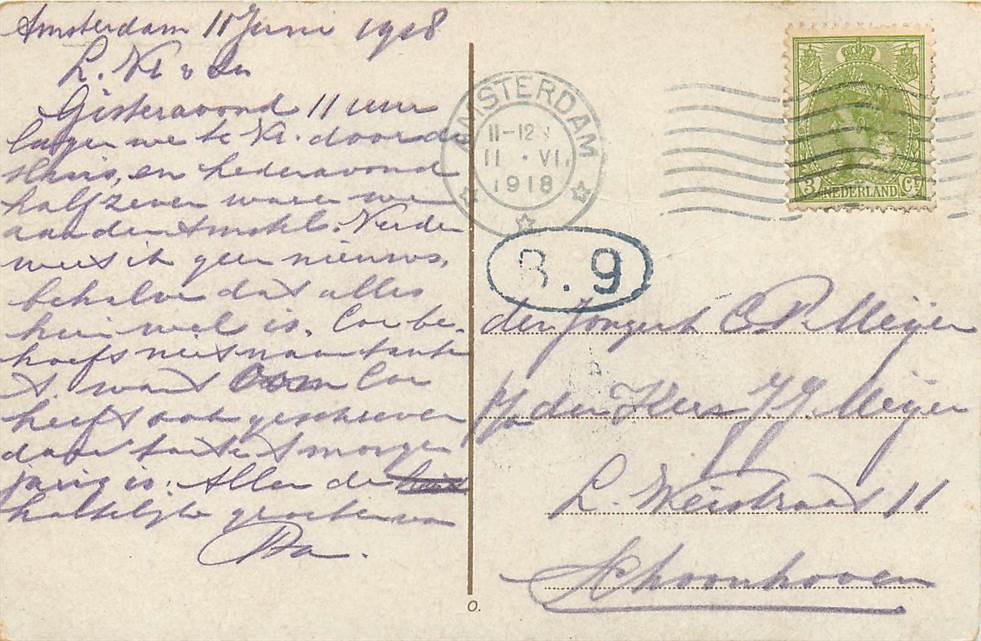 Amsterdam 11 Juni 1918
L. Vr & Zn
Gisteravond 11 uur
lagen we te Vr. door de
sluis, en hedenavond
half zeven waren we
aan den Amstel. Verder
weet ik geen nieuws,
behalve dat alles
hier wel is. Cor be-
hoeft niet naar tante
S. want Oom Cor
heeft ook geschreven
daar tante S morgen
jarig is. Allen de
hartelijke groeten van
Pa.
AMSTERDAM
11-12
11 · VI.
1918
3 NEDERLAND Ct
B. 9
den Jongen C P. Meijer
p/a den Heer J J. Meijer
L. Weistraat 11
Schoonhoven
O.